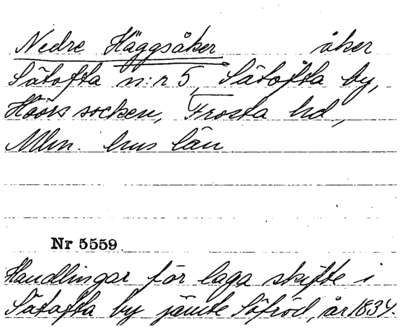 Nedre Häggsåker åker
Sätofta n:r 5, Sätofta by,
Höörs socken, Frosta hd,
Mlm. hus län
Nr 5559.
Handlingar för laga skifte i
Sätofta by jämte Säfröd, år 1834.